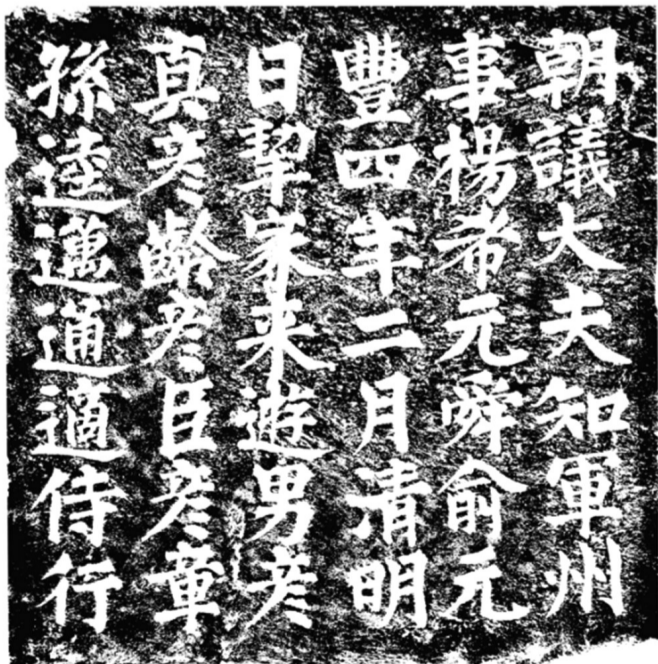 朝議大夫知軍州
事楊希元舜俞元
豐四年二月清明
日挈家来遊男彦
真彦齡彦臣彦章
孫逵邁通適侍行